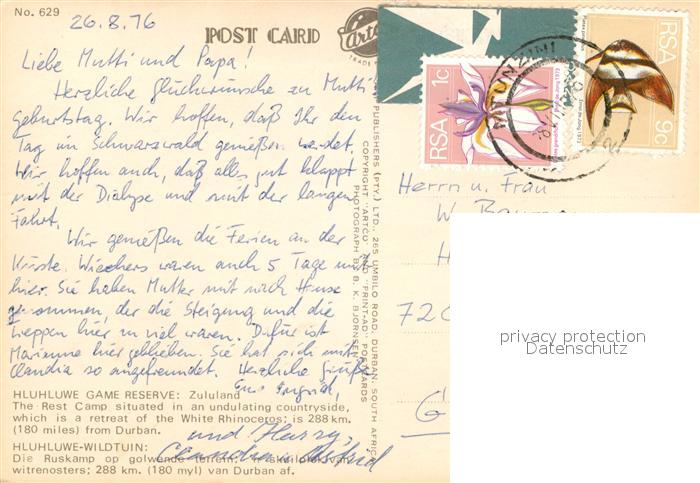 No. 629
26.8.76
POST CARD
Artco
TRADE
Liebe Mutti und Papa!
Herzliche Glückwünsche zu Mutti
Geburtstag. Wir hoffen, daß Ihr den
Tag im Schwarzwald genießen werdet.
Wir hoffen auch, daß alles gut klappt
mit der Dialyse und mit der langen
Fahrt.
Wir genießen die Ferien an der
Küste. Wiechers waren auch 5 Tage mit
hier. Sie haben Mutter mit nach Hause
genommen, der die Steigung und die
Treppen hier zu viel waren. Dafür ist
Marianne hier geblieben. Sie hat sich mit
Claudia so angefreundet. Herzliche Grüße,
Eure Ingrid,
und Harry,
Claudia u. Astrid
HLUHLUWE GAME RESERVE: Zululand
The Rest Camp situated in an undulating countryside,
which is a retreat of the White Rhinoceros; is 288 km.
(180 miles) from Durban.
HLUHLUWE-WILDTUIN:
Die Ruskamp op golwende terrein;
witrenosters; 288 km. (180 myl) van Durban af.
PUBLISHERS (PTY.) LTD., 265 UMBILO ROAD, DURBAN, SOUTH AFRICA
COPYRIGHT "ARTCO" AND "PRINT-AD" POSTCARDS
PHOTOGRAPH BY B. K. BJORNSEN
RSA 1c
RSA 9c
MTUNZINI
Herrn u. Frau
W.
H
720
G
privacy protection
Datenschutz